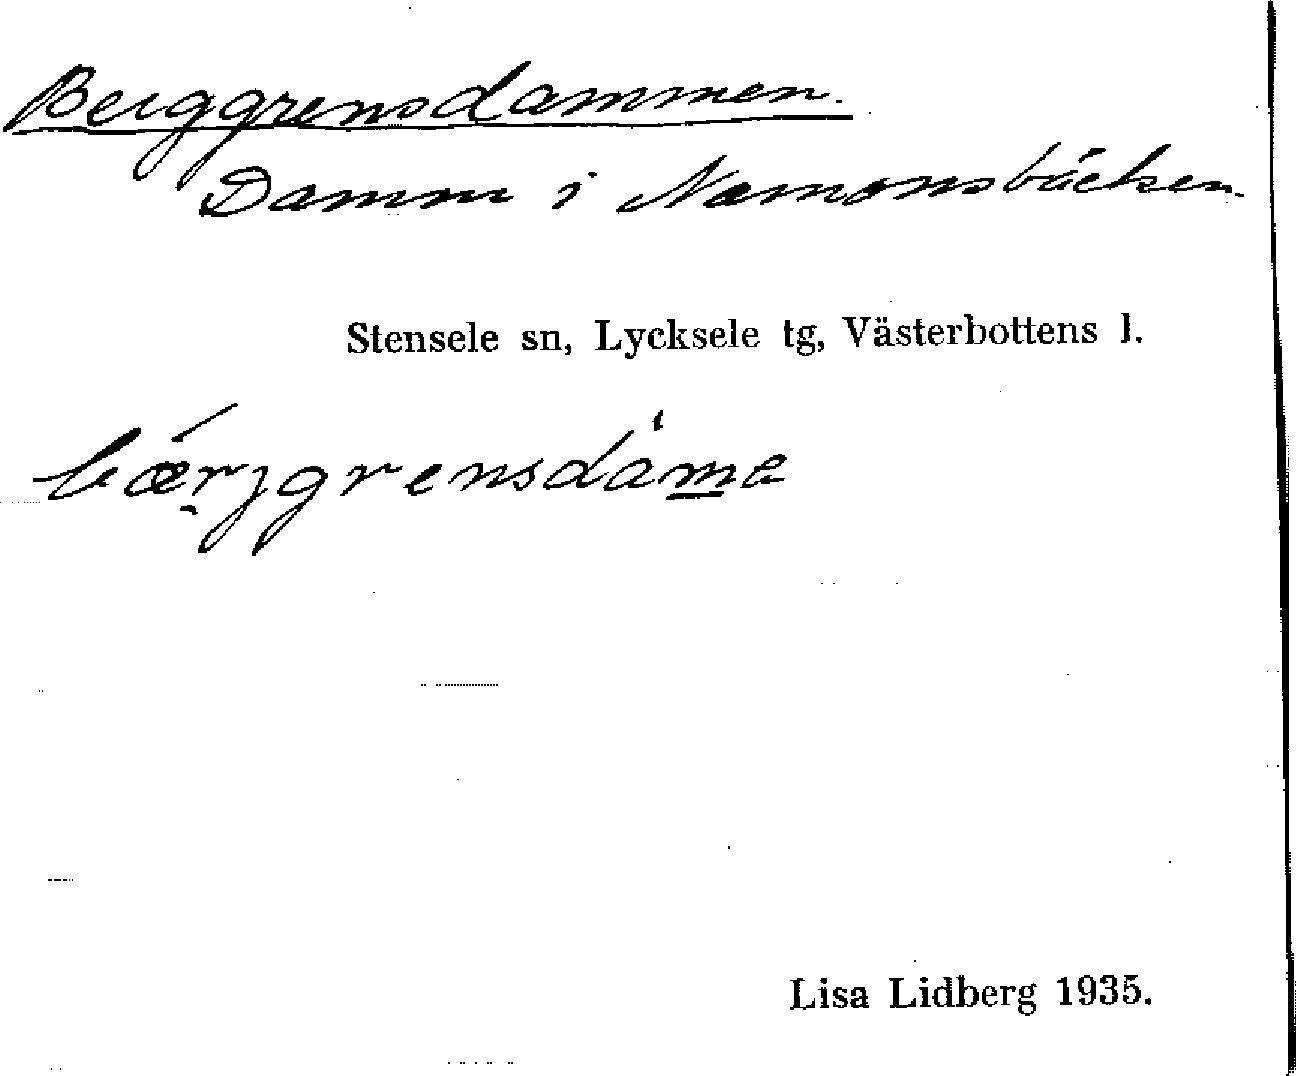 Berggrensdammen.
Damm i Namonsbäcken
Stensele sn, Lycksele tg, Västerbottens l.
bærjgrensdäma
Lisa Lidberg 1935.